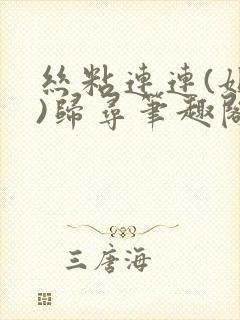 絲粘連連(
)歸尋筆趣閣
三唐海